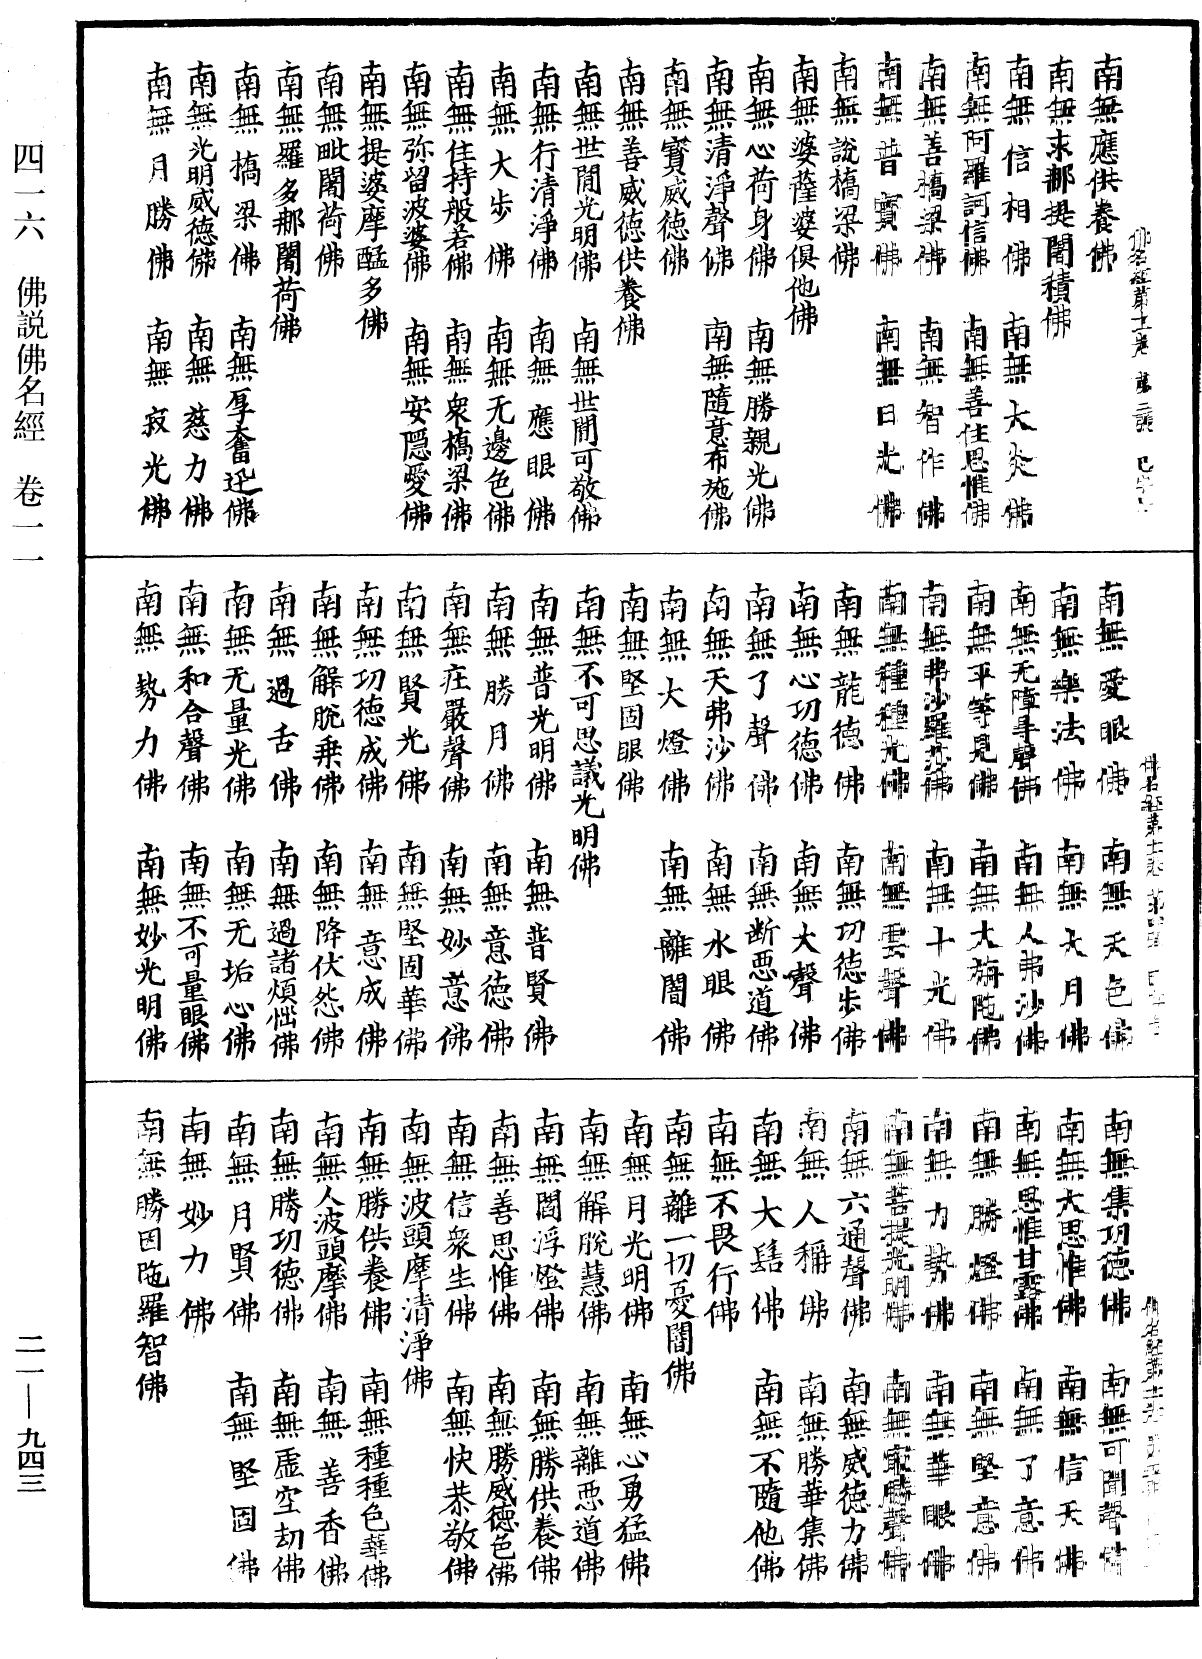 南無應供養佛
南無求那提闇積佛
南無信相佛　南無大炎佛
南無阿羅訶信佛　南無善住思惟佛
南無善橋梁佛　南無智作佛
南無普寶佛　南無日光佛
南無說橋梁佛
南無婆薩婆俱他佛
南無心荷身佛　南無勝親光佛
南無清淨聲佛　南無隨意布施佛
南無寶威德佛
南無善威德供養佛
南無世間光明佛　南無世間可敬佛
南無行清淨佛　南無應眼佛
南無大步佛　南無无邊色佛
南無住持般若佛　南無衆橋梁佛
南無弥留波婆佛　南無安隱愛佛
南無提婆摩醯多佛
南無毗闍荷佛
南無羅多那闍荷佛
南無橋梁佛　南無厚奮迅佛
南無光明威德佛　南無慈力佛
南無月勝佛　南無寂光佛
南無愛眼佛　南無天色佛
南無樂法佛　南無大月佛
南無无障㝵聲佛　南無人弗沙佛
南無平等見佛　南無大旃陁佛
南無弗沙羅莎佛　南無十光佛
南無種種光佛　南無雲聲佛
南無龍德佛　南無功德步佛
南無心功德佛　南無大聲佛
南無了聲佛　南無断惡道佛
南無天弗沙佛　南無水眼佛
南無大燈佛　南無離闇佛
南無堅固眼佛
南無不可思議光明佛
南無普光明佛　南無普賢佛
南無勝月佛　南無意德佛
南無庄嚴聲佛　南無妙意佛
南無賢光佛　南無堅固華佛
南無功德成佛　南無意成佛
南無解脫乗佛　南無降伏怨佛
南無過舌佛　南無過諸煩惱佛
南無无量光佛　南無无垢心佛
南無和合聲佛　南無不可量眼佛
南無勢力佛　南無妙光明佛
南無集功德佛　南無可聞聲佛
南無大思惟佛　南無信天佛
南無思惟甘露佛　南無了意佛
南無勝燈佛　南無堅意佛
南無力勢佛　南無華眼佛
南無菩提光明佛　南無冣勝聲佛
南無六通聲佛　南無威德力佛
南無人稱佛　南無勝華集佛
南無大髻佛　南無不隨他佛
南無不畏行佛
南無離一切憂闇佛
南無月光明佛　南無心勇猛佛
南無解脫慧佛　南無離惡道佛
南無閻浮燈佛　南無勝供養佛
南無善思惟佛　南無勝威德色佛
南無信衆生佛　南無快恭敬佛
南無波頭摩清淨佛
南無勝供養佛　南無種種色華佛
南無人波頭摩佛　南無善香佛
南無勝功德佛　南無虛空劫佛
南無月賢佛　南無堅固佛
南無妙力佛
南無勝因陁羅智佛
四一六　佛説佛名經　卷一一
二一—九四三